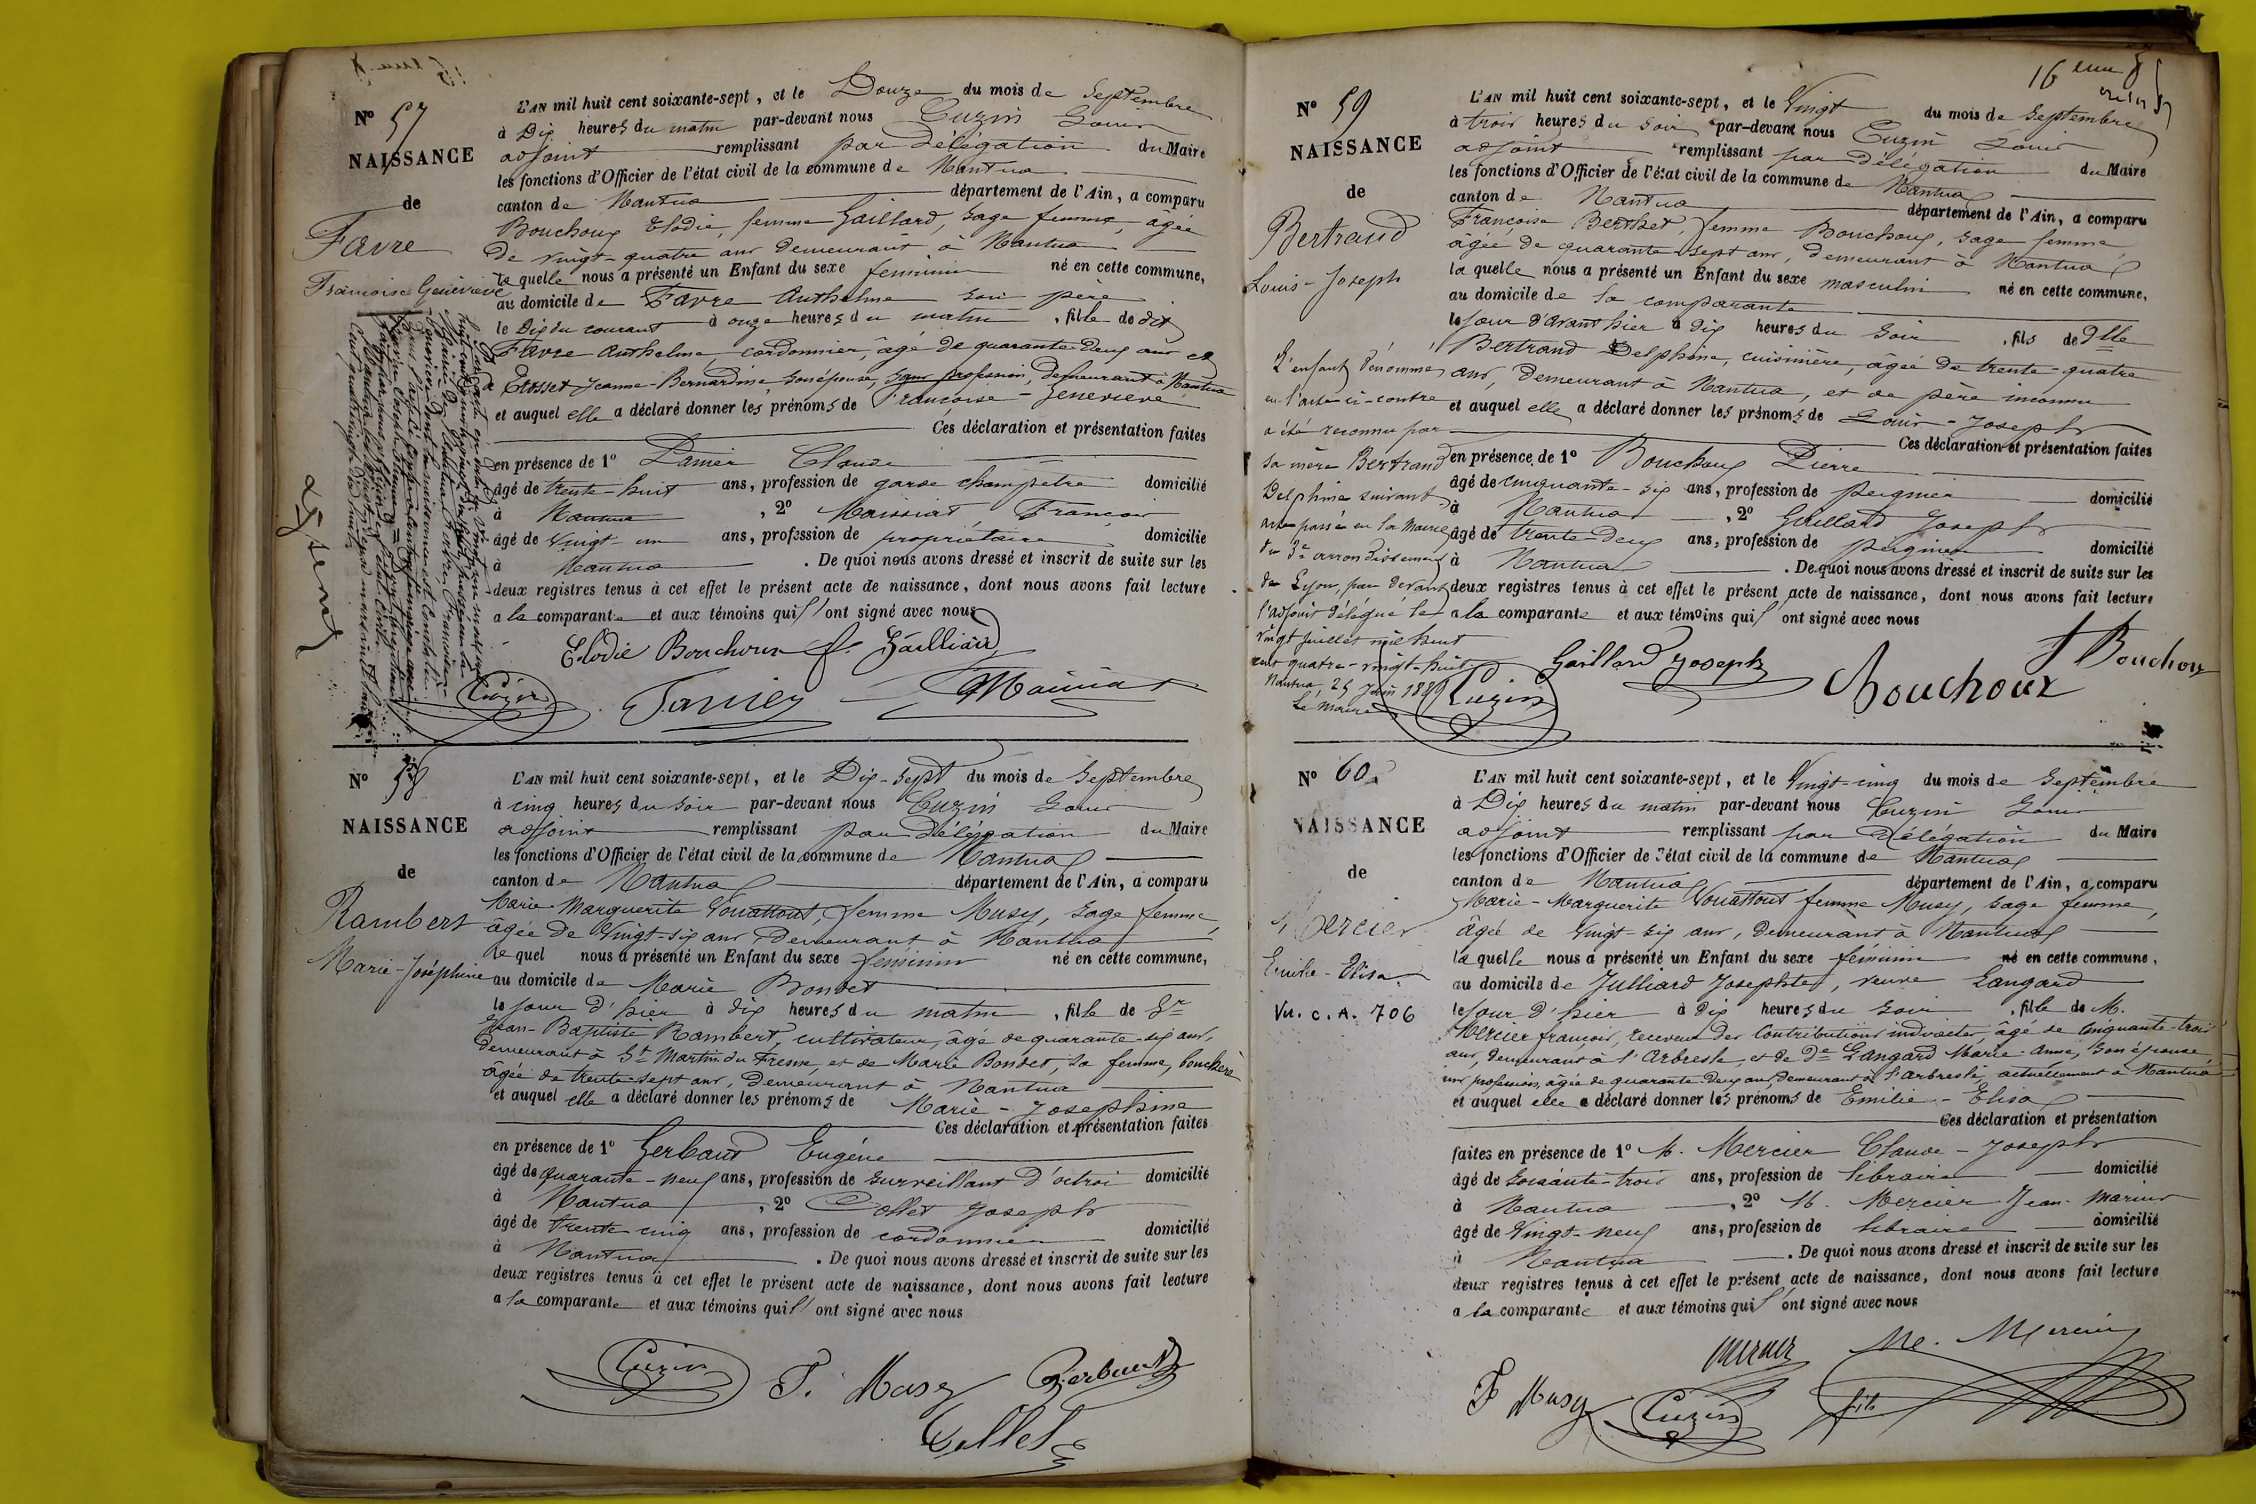 N° 57
NAISSANCE
de
Favre
Françoise Geneviève
L'AN mil huit cent soixante-sept, et le Douze du mois de Septembre
à Dix heures du matin par-devant nous Cuzin Louis
adjoint remplissant par Délégation du Maire
les fonctions d'Officier de l'état civil de la commune de Nantua
canton de Nantua département de l'Ain, a comparu
Bouchoux Elodie, femme Gaillard, sage femme, âgée
de vingt-quatre ans demeurant à Nantua
la quelle nous a présenté un Enfant du sexe féminin né en cette commune,
au domicile de Favre Anthelme son père
le Dix du courant à onze heures du matin, fille de dit
Favre Anthelme cordonnier, âgé de quarante-deux ans et
de Jeanne-Bernardine son épouse, sans profession, demeurant à Nantua
et auquel elle a déclaré donner les prénoms de Françoise-Geneviève
Ces déclaration et présentation faites
en présence de 1° Panier Claude
âgé de trente-huit ans, profession de garde champêtre domicilié
à Nantua, 2° Maissiat François
âgé de vingt-un ans, profession de propriétaire domicilié
à Nantua. De quoi nous avons dressé et inscrit de suite sur les
deux registres tenus à cet effet le présent acte de naissance, dont nous avons fait lecture
a la comparante et aux témoins qui l'ont signé avec nous
Elodie Bouchoux f. Gaillard
Cuzin Panier Maissiat
N° 58
NAISSANCE
de
Rambert
Marie-Joséphine
L'AN mil huit cent soixante-sept, et le Dix-sept du mois de Septembre
à cinq heures du soir par-devant nous Cuzin Louis
adjoint remplissant par Délégation du Maire
les fonctions d'Officier de l'état civil de la commune de Nantua
canton de Nantua département de l'Ain, a comparu
Marie-Marguerite Vouattout, femme Musy, sage femme,
âgée de vingt-six ans, demeurant à Nantua
le quel nous a présenté un Enfant du sexe féminin né en cette commune,
au domicile de Marie Bondet
le jour d'hier à dix heures du matin, fille de Sr
Jean-Baptiste Rambert, cultivateur, âgé de quarante-six ans,
demeurant à St Martin du Fresne, et de Marie Bondet, sa femme, bouchère
âgée de trente-sept ans, demeurant à Nantua
et auquel elle a déclaré donner les prénoms de Marie-Josephine
Ces déclaration et présentation faites
en présence de 1° Gerbaud Eugène
âgé de quarante-neuf ans, profession de surveillant d'octroi domicilié
à Nantua, 2° Collet Joseph
âgé de trente cinq ans, profession de cordonnier domicilié
à Nantua. De quoi nous avons dressé et inscrit de suite sur les
deux registres tenus à cet effet le présent acte de naissance, dont nous avons fait lecture
a la comparante et aux témoins qui l'ont signé avec nous
Cuzin F. Musy Gerbaud
Collet
N° 59
NAISSANCE
de
Bertrand
Louis-Joseph
L'enfant dénommé
en l'acte ci-contre
a été reconnu par
sa mère Bertrand
Delphine suivant
acte passé en la Mairie
du 3e arrondissement
de Lyon, par devant
l'adjoint délégué le
vingt juillet mil huit
cent quatre-vingt-huit
Nantua 25 Juin 1889
Le Maire
16
L'AN mil huit cent soixante-sept, et le Vingt du mois de Septembre
à trois heures du soir par-devant nous Cuzin Louis
adjoint remplissant par Délégation du Maire
les fonctions d'Officier de l'état civil de la commune de Nantua
canton de Nantua département de l'Ain, a comparu
Françoise Berthet, femme Bouchoux, sage femme,
âgée de quarante sept ans, demeurant à Nantua
la quelle nous a présenté un Enfant du sexe masculin né en cette commune,
au domicile de la comparante
le jour d'avant hier à dix heures du soir, fils de Dlle
Bertrand Delphine, cuisinière, âgée de trente-quatre
ans, demeurant à Nantua, et de père inconnu
et auquel elle a déclaré donner les prénoms de Louis-Joseph
Ces déclaration et présentation faites
en présence de 1° Bouchoux Pierre
âgé de cinquante-six ans, profession de peignier domicilié
à Nantua, 2° Gaillard Joseph
âgé de trente-deux ans, profession de peignier domicilié
à Nantua. De quoi nous avons dressé et inscrit de suite sur les
deux registres tenus à cet effet le présent acte de naissance, dont nous avons fait lecture
a la comparante et aux témoins qui l'ont signé avec nous
Cuzin Gaillard Joseph Bouchoux f Bouchoux
N° 60
NAISSANCE
de
Mercier
Emilie-Elisa
Vu. C. A. 706
L'AN mil huit cent soixante-sept, et le Vingt-cinq du mois de Septembre
à Dix heures du matin par-devant nous Cuzin Louis
adjoint remplissant par Délégation du Maire
les fonctions d'Officier de l'état civil de la commune de Nantua
canton de Nantua département de l'Ain, a comparu
Marie-Marguerite Vouattout femme Musy, sage femme,
âgée de vingt-six ans, demeurant à Nantua
la quelle nous a présenté un Enfant du sexe féminin né en cette commune,
au domicile de Julliard Josephte, veuve Langard
le jour d'hier à dix heures du soir, fille de M.
Mercier françois, receveur des Contributions indirectes, âgé de cinquante-trois
ans, demeurant à l'Arbresle et de De Langard Marie-Anne, son épouse,
sans profession, âgée de quarante-deux ans, demeurant à l'Arbresle actuellement à Nantua
et auquel elle a déclaré donner les prénoms de Emilie-Elisa
Ces déclaration et présentation
faites en présence de 1° M. Mercier Claude-Joseph
âgé de soixante-trois ans, profession de libraire domicilié
à Nantua, 2° M. Mercier Jean-Marius
âgé de vingt-neuf ans, profession de libraire domicilié
à Nantua. De quoi nous avons dressé et inscrit de suite sur les
deux registres tenus à cet effet le présent acte de naissance, dont nous avons fait lecture
a la comparante et aux témoins qui l'ont signé avec nous
F Musy Cuzin Mercier Mercier fils